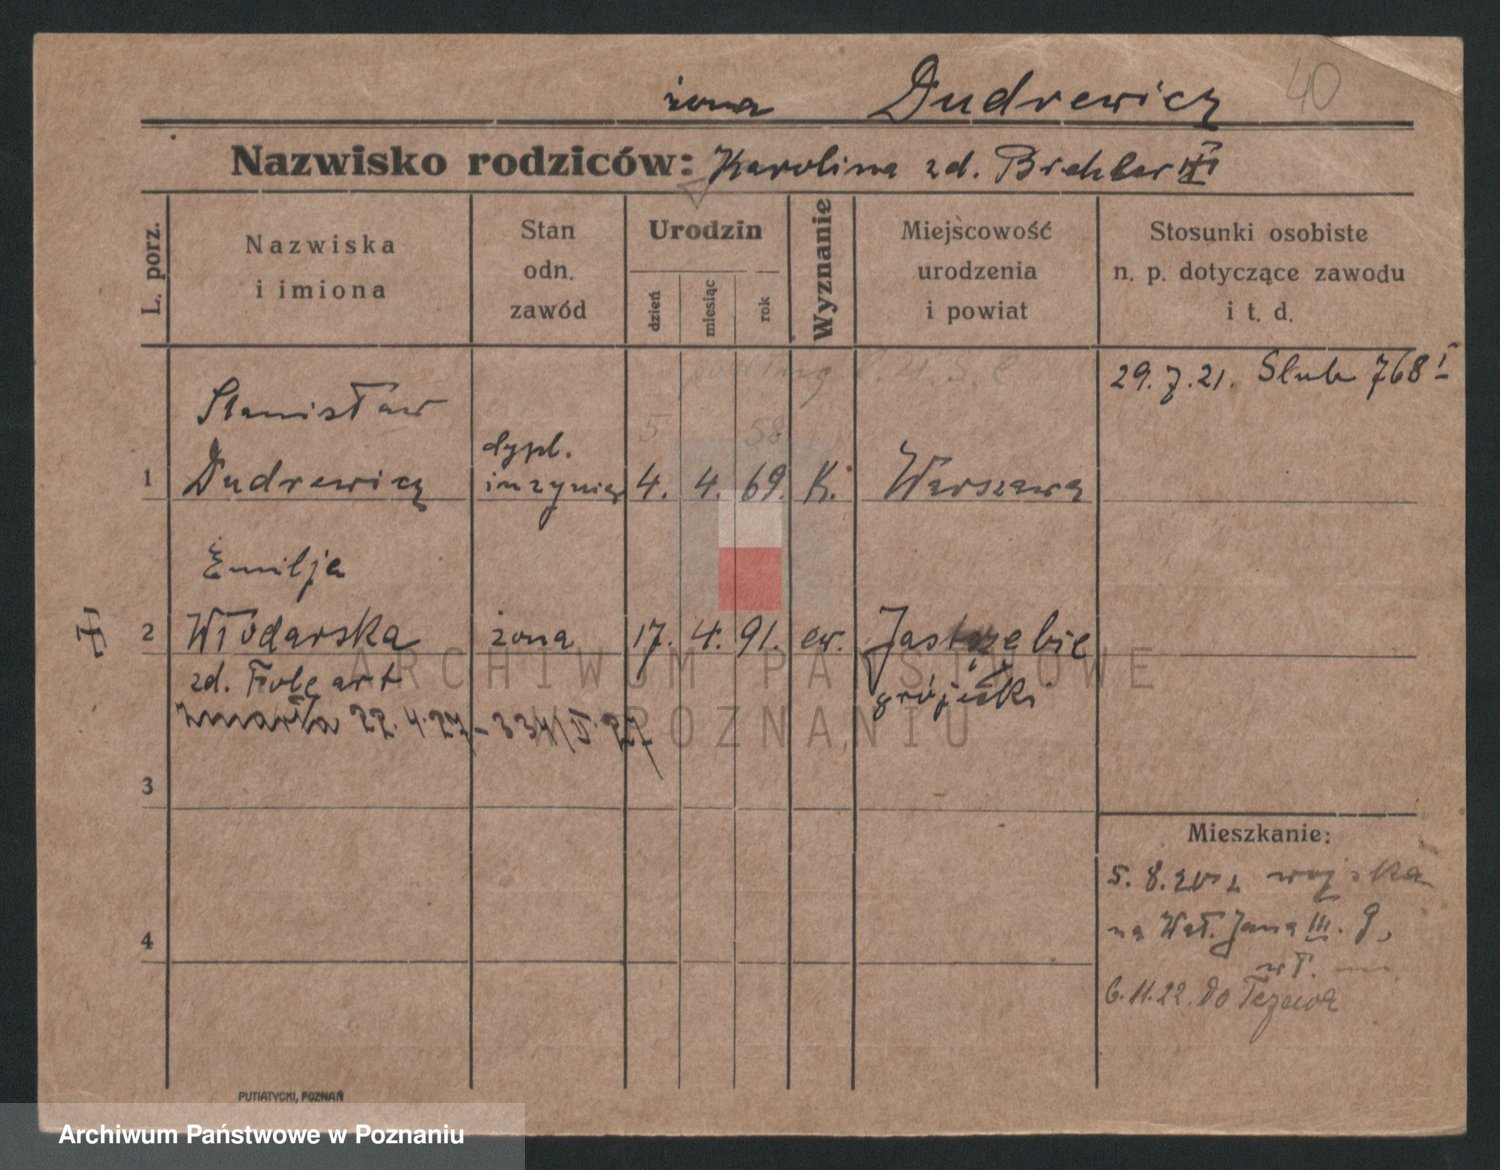 żona Dudrewicz 40
Nazwisko rodziców: Karolina zd. Biehler III
L. porz.
Nazwiska
i imiona
Stan
odn.
zawód
Urodzin
dzień
miesiąc
rok
Wyznanie
Miejscowość
urodzenia
i powiat
Stosunki osobiste
n. p. dotyczące zawodu
i t. d.
29.7.21. Slub 768 I
5 58
1
Stanisław
Dudrewicz
dypl.
inżynier
4. 4. 69. K. Warszawa
2
Emilja
Włodarska
zd. Folgart
żona
17. 4. 91. ew. Jastrzębie
grójecki
zmarła 22.4.27 - 334/II.27
3
4
Mieszkanie:
5.8. z wojska
na Wał. Jana III. 9,
wł.
6.11.22. Do Tczewa
PUTIATYCKI, POZNAŃ
ARCHIWUM PAŃSTWOWE
W POZNANIU
Archiwum Państwowe w Poznaniu